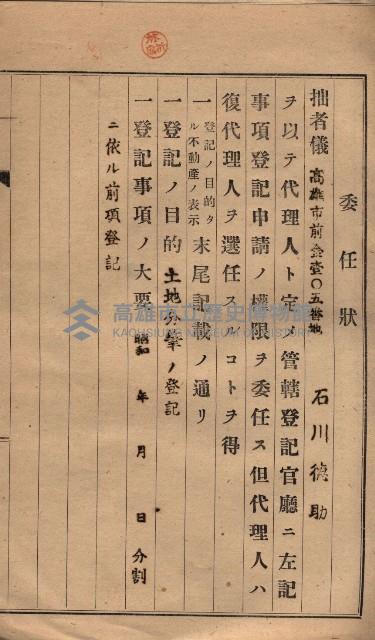 委任狀
拙者儀高雄市前金壹〇五番地 石川德助
ヲ以テ代理人ト定メ管轄登記官廳ニ左記
事項登記申請ノ權限ヲ委任ス但代理人ハ
復代理人ヲ選任スルコトヲ得
一登記ノ目的タル不動產ノ表示 末尾記載ノ通リ
一登記ノ目的 土地分筆ノ登記
一登記事項ノ大要 昭和 年 月 日 分割
ニ依ル前項登記
高雄市立歷史博物館
KAOHSIUNG MUSEUM OF HISTORY